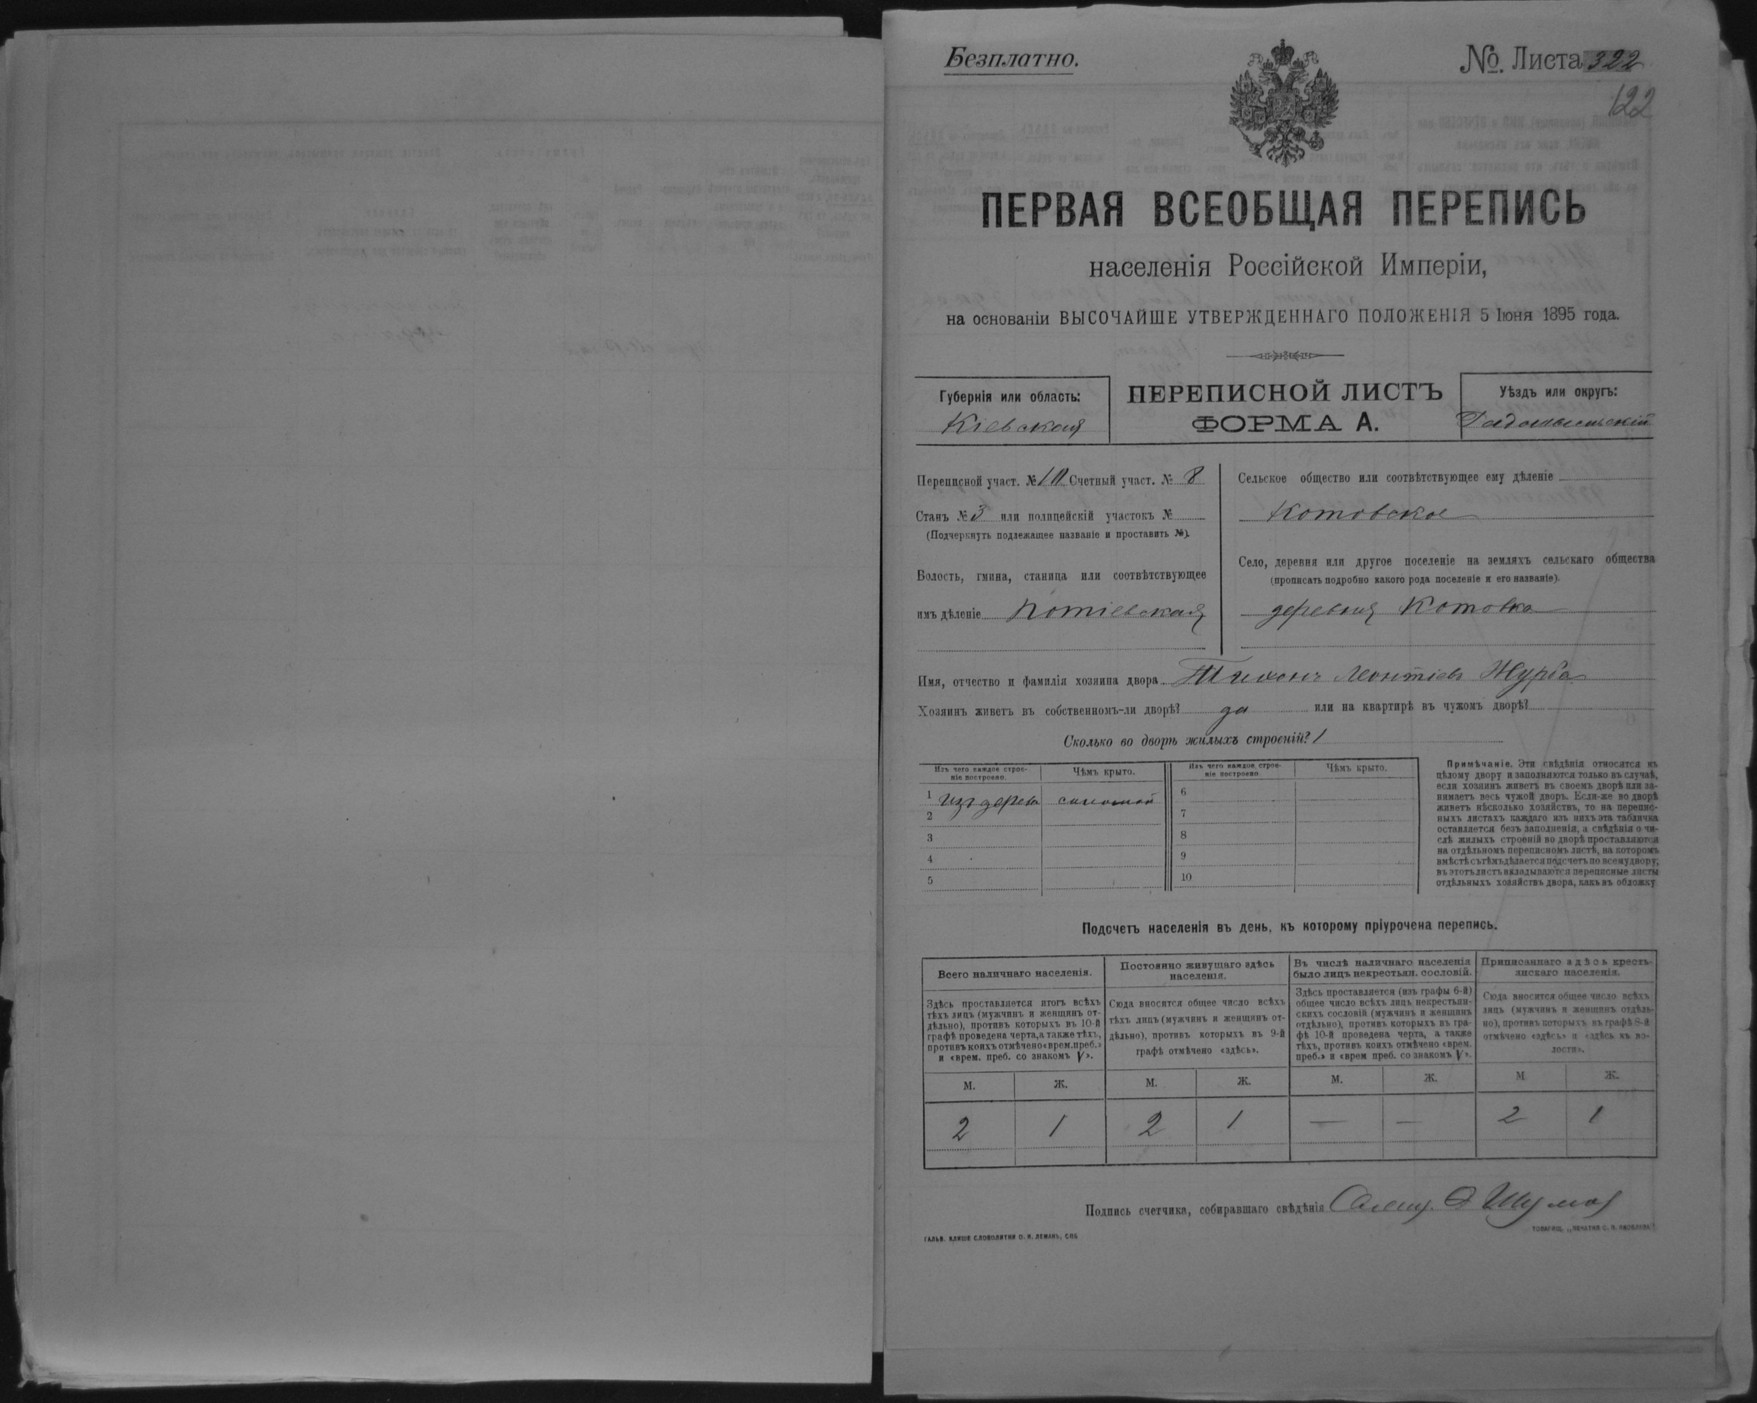 Безплатно.
№. Листа 322
122
ПЕРВАЯ ВСЕОБЩАЯ ПЕРЕПИСЬ
населенія Россійской Имперіи,
на основаніи ВЫСОЧАЙШЕ УТВЕРЖДЕННАГО ПОЛОЖЕНІЯ 5 Іюня 1895 года.
Губернія или область:
Кіевская
ПЕРЕПИСНОЙ ЛИСТЪ
ФОРМА А.
Уѣздъ или округъ:
Радомысльскій
Переписной участ. № Счетный участ. № 8
Станъ № 3 или полицейскій участокъ №
(Подчеркнуть подлежащее названіе и проставить №).
Волость, гмина, станица или соотвѣтствующее
имъ дѣленіе Потіевская
Сельское общество или соотвѣтствующее ему дѣленіе
Котовское
Село, деревня или другое поселеніе на земляхъ сельскаго общества
(прописать подробно какого рода поселеніе и его названіе).
деревня Котовка
Имя, отчество и фамилія хозяина двора Тихонъ Леонтіевъ Журба
Хозяинъ живетъ въ собственномъ-ли дворѣ? да или на квартирѣ въ чужомъ дворѣ?
Сколько во дворѣ жилыхъ строеній? 1
Изъ чего каждое строе-
ніе построено.
Чѣмъ крыто.
Изъ чего каждое строе-
ніе построено.
Чѣмъ крыто.
1 изъ дерева соломой
2
3
4
5
6
7
8
9
10
Примѣчаніе. Эти свѣдѣнія относятся къ
цѣлому двору и заполняются только въ случаѣ,
если хозяинъ живетъ въ своемъ дворѣ или за-
нимаетъ весь чужой дворъ. Если-же во дворѣ
живетъ нѣсколько хозяйствъ, то на перепис-
ныхъ листахъ каждаго изъ нихъ эта табличка
оставляется безъ заполненія, а свѣдѣнія о чи-
слѣ жилыхъ строеній во дворѣ проставляются
на отдѣльномъ переписномъ листѣ, на которомъ
вмѣстѣ съ тѣмъ дѣлается подсчетъ по всему двору;
въ этотъ листъ вкладываются переписные листы
отдѣльныхъ хозяйствъ двора, какъ въ обложку
Подсчетъ населенія въ день, къ которому пріурочена перепись.
Всего наличнаго населенія.
Здѣсь проставляется итогъ всѣхъ
тѣхъ лицъ (мужчинъ и женщинъ от-
дѣльно), противъ которыхъ въ 10-й
графѣ проведена черта, а также тѣхъ,
противъ коихъ отмѣчено «врем. преб.»
и «врем. преб. со знакомъ V».
М. Ж.
2 1
Постоянно живущаго здѣсь
населенія.
Сюда вносится общее число всѣхъ
тѣхъ лицъ (мужчинъ и женщинъ от-
дѣльно), противъ которыхъ въ 9-й
графѣ отмѣчено «здѣсь».
М. Ж.
2 1
Въ числѣ наличнаго населенія
было лицъ некрестьян. сословій.
Здѣсь проставляется (изъ графы 6-й)
общее число всѣхъ лицъ некрестьян-
скихъ сословій (мужчинъ и женщинъ
отдѣльно), противъ которыхъ въ гра-
фѣ 10-й проведена черта, а также
тѣхъ, противъ коихъ отмѣчено «врем.
преб.» и «врем преб. со знакомъ V».
М. Ж.
— —
Приписаннаго здѣсь кресть-
янскаго населенія.
Сюда вносится общее число всѣхъ
лицъ (мужчинъ и женщинъ отдѣль-
но), противъ которыхъ въ графѣ 8-й
отмѣчено «здѣсь» и «здѣсь въ во-
лости».
М Ж.
2 1
Подпись счетчика, собиравшаго свѣдѣнія
ГАЛЬВ. КЛИШЕ СЛОВОЛИТНИ О. И. ЛЕМАНЪ, СПБ.
ТОВАРИЩ. „ПЕЧАТНЯ С. П. ЯКОВЛЕВА“.